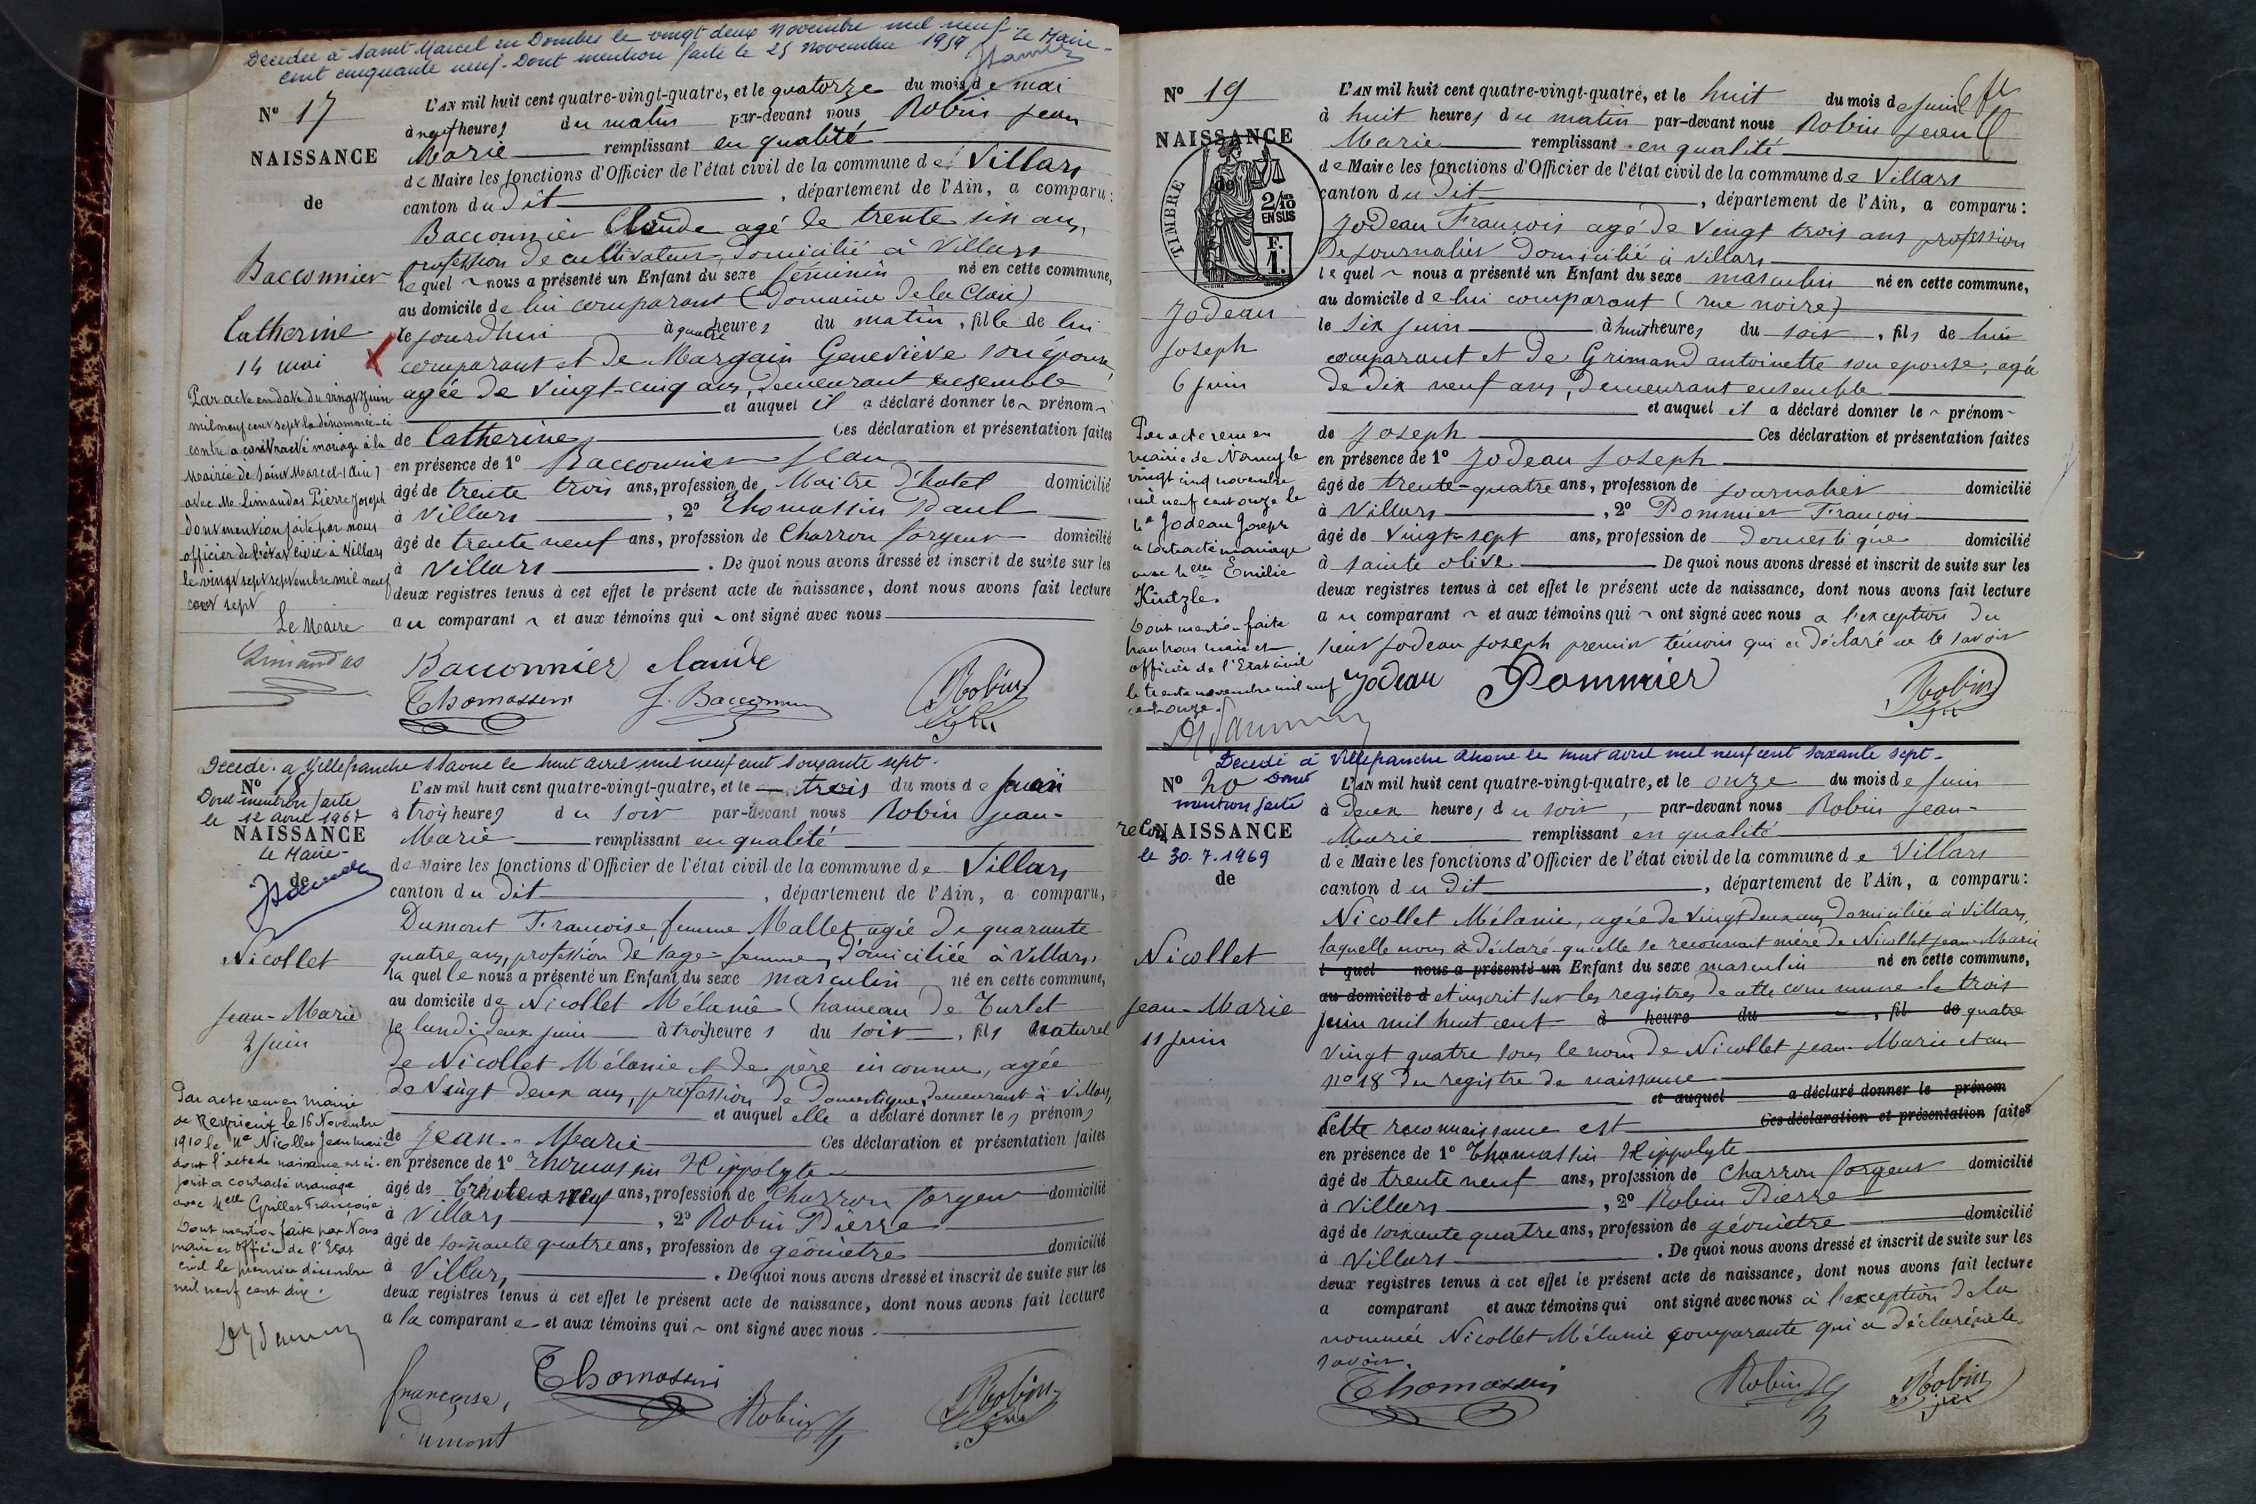 Décédée à Saint Marcel en Dombes le vingt deux novembre mil neuf
cent cinquante neuf. Dont mention faite le 25 novembre 1959 Le Maire
N° 17
NAISSANCE
de
Bacconnier
Catherine
14 mai
Par acte en date du vingt juin
mil neuf cent sept la dénommée ci
contre a contracté mariage à la
Mairie de Saint Marcel (Ain)
avec Mr Limandas Pierre Joseph
dont mention faite par nous
officier de l'état civil à Villars
le vingt sept septembre mil neuf
cent sept
Le Maire
Limandas
L'AN mil huit cent quatre-vingt-quatre, et le quatorze du mois de mai
à neuf heures du matin par-devant nous Robin Jean
Marie remplissant en qualité
de Maire les fonctions d'Officier de l'état civil de la commune de Villars
canton du dit, département de l'Ain, a comparu:
Bacconnier Claude agé de trente six ans,
profession de cultivateur, domicilié à Villars
lequel nous a présenté un Enfant du sexe féminin né en cette commune,
au domicile de lui comparant (domaine de la Claie)
le jourdhui à quatre heures du matin, fille de lui
comparant et de Margain Geneviève son épouse,
agée de vingt-cinq ans, demeurant ensemble
et auquel il a déclaré donner le prénom
de Catherine Ces déclaration et présentation faites
en présence de 1° Bacconnier Jean
âgé de trente trois ans, profession de Maitre d'hotel domicilié
à Villars, 2° Thomassin Paul
âgé de trente neuf ans, profession de Charron forgeur domicilié
à Villars. De quoi nous avons dressé et inscrit de suite sur les
deux registres tenus à cet effet le présent acte de naissance, dont nous avons fait lecture
au comparant et aux témoins qui ont signé avec nous
Bacconnier claude
Thomassin J. Bacconnier Robin
Décédé à Villefranche s Saone le huit avril mil neuf cent soixante sept.
N° 18
Dont mention faite
le 12 avril 1967
NAISSANCE
Le Maire
de
Nicollet
Jean-Marie
2 juin
Par acte reçu en mairie
de Reyrieux le 16 Novembre
1910 le Né Nicollet Jean Marie
dont l'acte de naissance est ci-
joint a contracté mariage
avec Melle Grillet Françoise
Dont mention faite par Nous
maire et Officier de l'Etat
civil le premier décembre
mil neuf cent dix.
L'AN mil huit cent quatre-vingt-quatre, et le trois du mois de Juin
à trois heures du soir par-devant nous Robin Jean-
Marie remplissant en qualité
de Maire les fonctions d'Officier de l'état civil de la commune de Villars
canton du dit, département de l'Ain, a comparu,
Dumont Francoise femme Mallet agée de quarante
quatre ans, profession de sage-femme, domiciliée à Villars,
laquelle nous a présenté un Enfant du sexe masculin né en cette commune,
au domicile de Nicollet Mélanie (hameau de Turlet
le lundi deux juin à trois heures du soir, fils naturel
de Nicollet Mélanie et de père inconnu, agée
de vingt deux ans, profession de domestique, demeurant à Villars,
et auquel elle a déclaré donner les prénoms
de Jean-Marie Ces déclaration et présentation faites
en présence de 1° Thomassin Hippolyte
âgé de trente neuf ans, profession de Charron forgeur domicilié
à Villars, 2° Robin Pierre
âgé de soixante quatre ans, profession de géomètre domicilié
à Villars. De quoi nous avons dressé et inscrit de suite sur les
deux registres tenus à cet effet le présent acte de naissance, dont nous avons fait lecture
a la comparante et aux témoins qui ont signé avec nous.
françoise, Thomassin Robin Robin
Dumont
N° 19
NAISSANCE
de
TIMBRE
2/10
EN SUS
F.
1.
Jodeau
Joseph
6 juin
Par acte reçu en
mairie de Nancy le
vingt cinq novembre
mil neuf cent onze le
Né Jodeau Joseph
a contracté mariage
avec Melle Emilie
Kintzle.
Dont mention faite
par nous maire et
officier de l'Etat civil
le trente novembre mil neuf
cent onze.
L'AN mil huit cent quatre-vingt-quatre, et le huit du mois de juin
à huit heures du matin par-devant nous Robin Jean
Marie remplissant en qualité
de Maire les fonctions d'Officier de l'état civil de la commune de Villars
canton du dit, département de l'Ain, a comparu:
Jodeau François agé de vingt trois ans profession
de journalier domicilié à Villars
lequel nous a présenté un Enfant du sexe masculin né en cette commune,
au domicile de lui comparant (rue noire)
le six juin à huit heures du soir, fils de lui
comparant et de Grimand antoinette son epouse, agée
de dix neuf ans, demeurant ensemble
et auquel il a déclaré donner le prénom
de Joseph Ces déclaration et présentation faites
en présence de 1° Jodeau Joseph
âgé de trente-quatre ans, profession de journalier domicilié
à Villars, 2° Pommier François
âgé de vingt-sept ans, profession de domestique domicilié
à sainte olive De quoi nous avons dressé et inscrit de suite sur les
deux registres tenus à cet effet le présent acte de naissance, dont nous avons fait lecture
au comparant et aux témoins qui ont signé avec nous a l'exception du
sieur Jodeau Joseph premier témoin qui a déclaré ne le savoir
Jodeau Pommier Robin
Décédé à Villefranche Rhone le huit avril mil neuf cent soixante sept.
N° 20 Dont
mention faite
NAISSANCE
le 30.7.1969
de
Nicollet
Jean-Marie
11 juin
L'AN mil huit cent quatre-vingt-quatre, et le onze du mois de juin
à deux heures du soir, par-devant nous Robin Jean-
Marie remplissant en qualité
de Maire les fonctions d'Officier de l'état civil de la commune de Villars
canton du dit, département de l'Ain, a comparu:
Nicollet Mélanie, agée de vingt deux ans, domiciliée à Villars,
laquelle nous a déclaré qu'elle se reconnait mère de Nicollet Jean-Marie
l quel nous a présenté un Enfant du sexe masculin né en cette commune,
au domicile d et inscrit sur les registres de cette commune le trois
juin mil huit cent à heure du, fil de quatre
vingt quatre sous le nom de Nicollet Jean-Marie et au
n° 18 du registre de naissance
et auquel a déclaré donner le prénom
Cette reconnaissance est Ces déclaration et présentation faites
en présence de 1° Thomassin Hippolyte
âgé de trente neuf ans, profession de Charron forgeur domicilié
à Villars, 2° Robin Pierre
âgé de soixante quatre ans, profession de géomètre domicilié
à Villars. De quoi nous avons dressé et inscrit de suite sur les
deux registres tenus à cet effet le présent acte de naissance, dont nous avons fait lecture
a comparant et aux témoins qui ont signé avec nous à l'exception de la
nommée Nicollet Mélanie comparante qui a déclaré ne le
savoir.
Thomassin Robin Robin